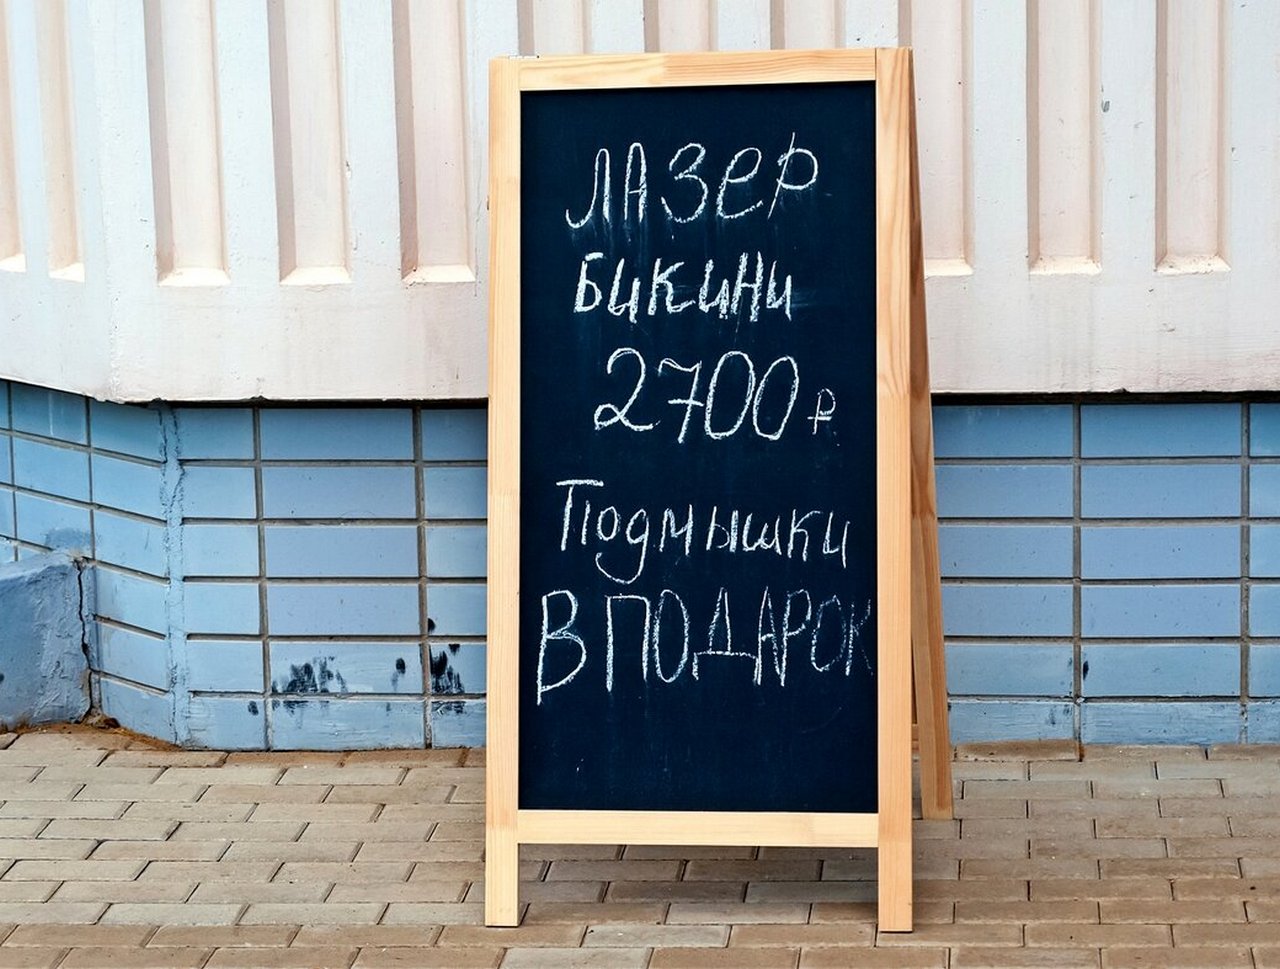 ЛАЗЕР
БИКИНИ
2700 ₽
Подмышки
В ПОДАРОК